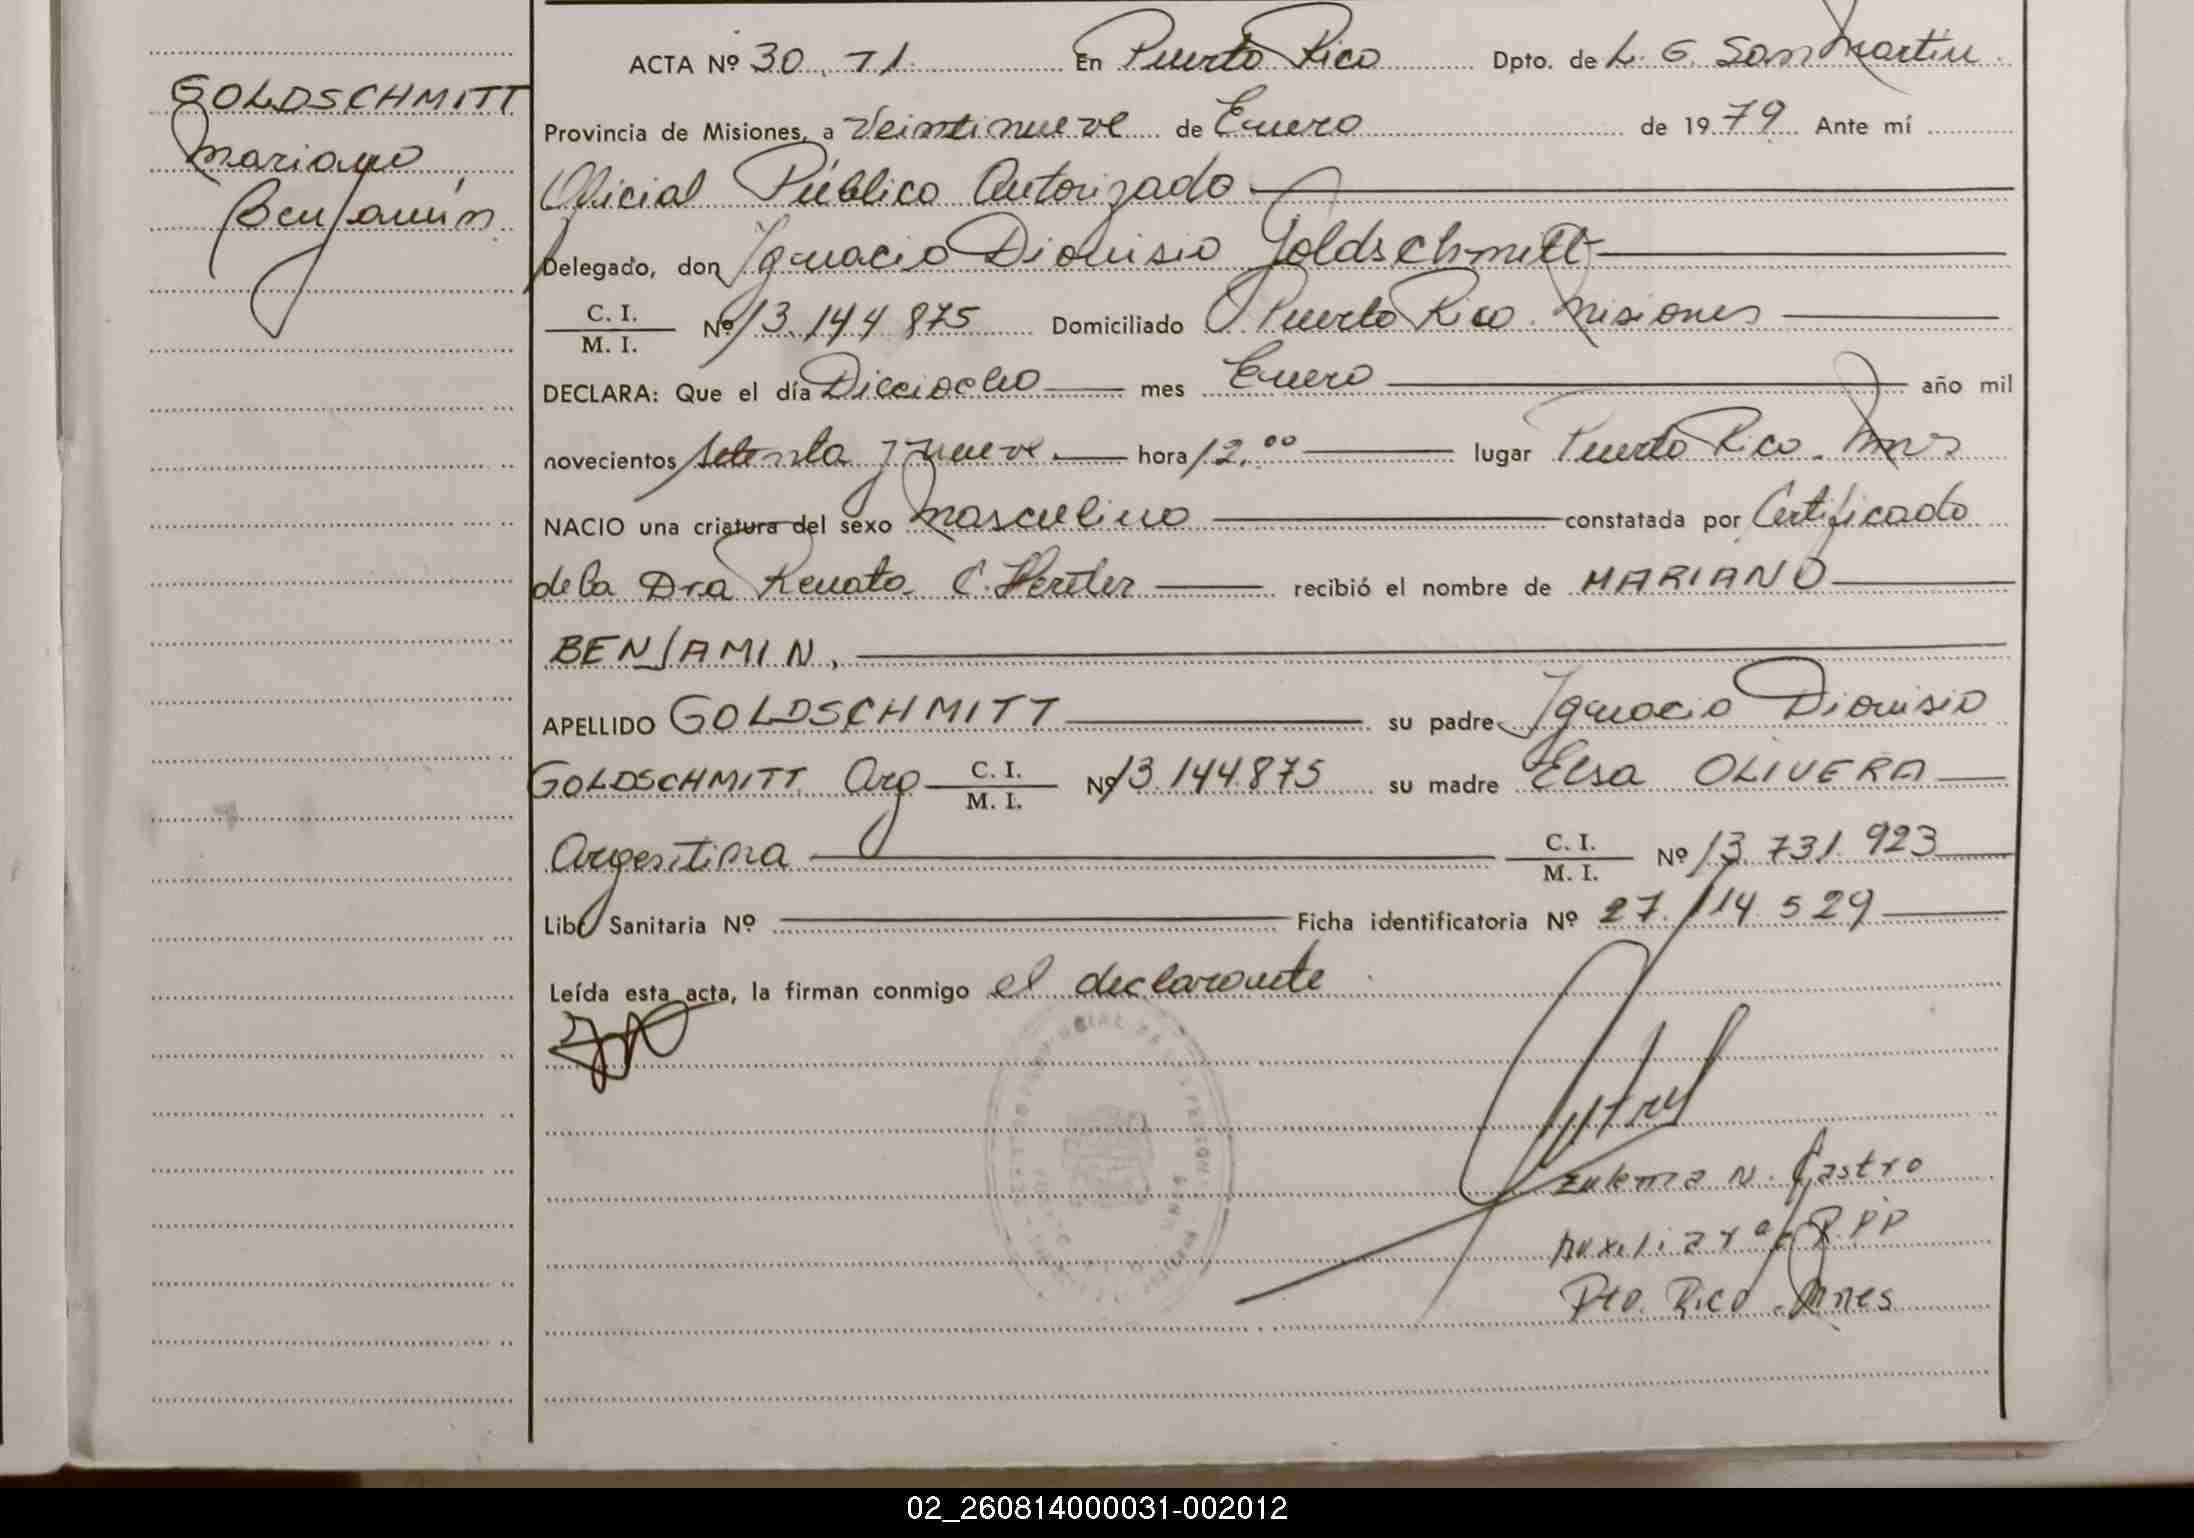 GOLDSCHMITT
Mariano
Benjamín
ACTA Nº 30. T1. En Puerto Rico Dpto. de L. G. San Martín
Provincia de Misiones, a Veintinueve de Enero de 1979 Ante mí
Oficial Público Autorizado
Delegado, don Ignacio Dionisio Goldschmitt
C. I.
M. I. Nº 13.144.875 Domiciliado Puerto Rico. Misiones
DECLARA: Que el día Dieciocho mes Enero año mil
novecientos setenta y nueve hora 12.00 lugar Puerto Rico. Mnes
NACIO una criatura del sexo masculino constatada por Certificado
de la Dra Renata C. Hertler recibió el nombre de MARIANO
BENJAMIN,
APELLIDO GOLDSCHMITT su padre Ignacio Dionisio
GOLDSCHMITT Arg C. I.
M. I. Nº 13.144.875 su madre Elsa OLIVERA
Argentina C. I.
M. I. Nº 13.731.923
Libr Sanitaria Nº Ficha identificatoria Nº 27.114.529
Leída esta acta, la firman conmigo el declarante
Zulema N. Castro
Auxiliar RPP
Pto. Rico. Mnes
02_260814000031-002012